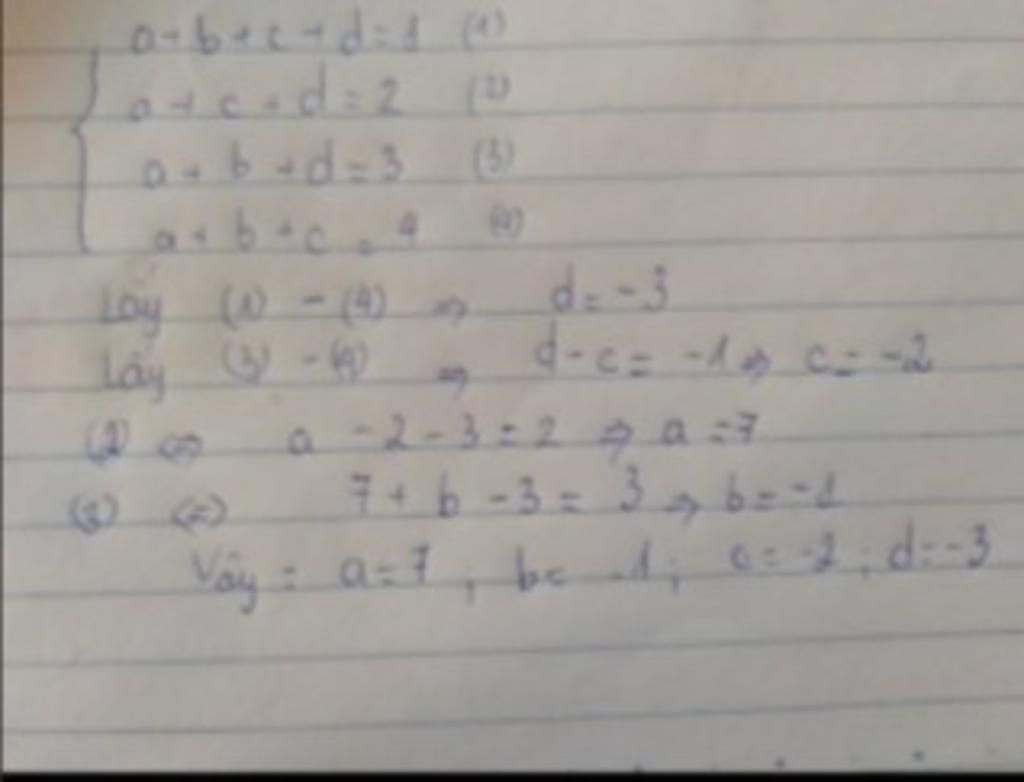 a+b+c+d=1 (1)
a+c+d=2 (2)
a+b+d=3 (3)
a+b+c=4 (4)
Lấy (1) - (4) => d=-3
Lấy (3) - (4) => d-c=-1 => c=-2
(2) <=> a-2-3=2 => a=7
(3) <=> 7+b-3=3 => b=-1
Vậy: a=7; b=-1; c=-2; d=-3